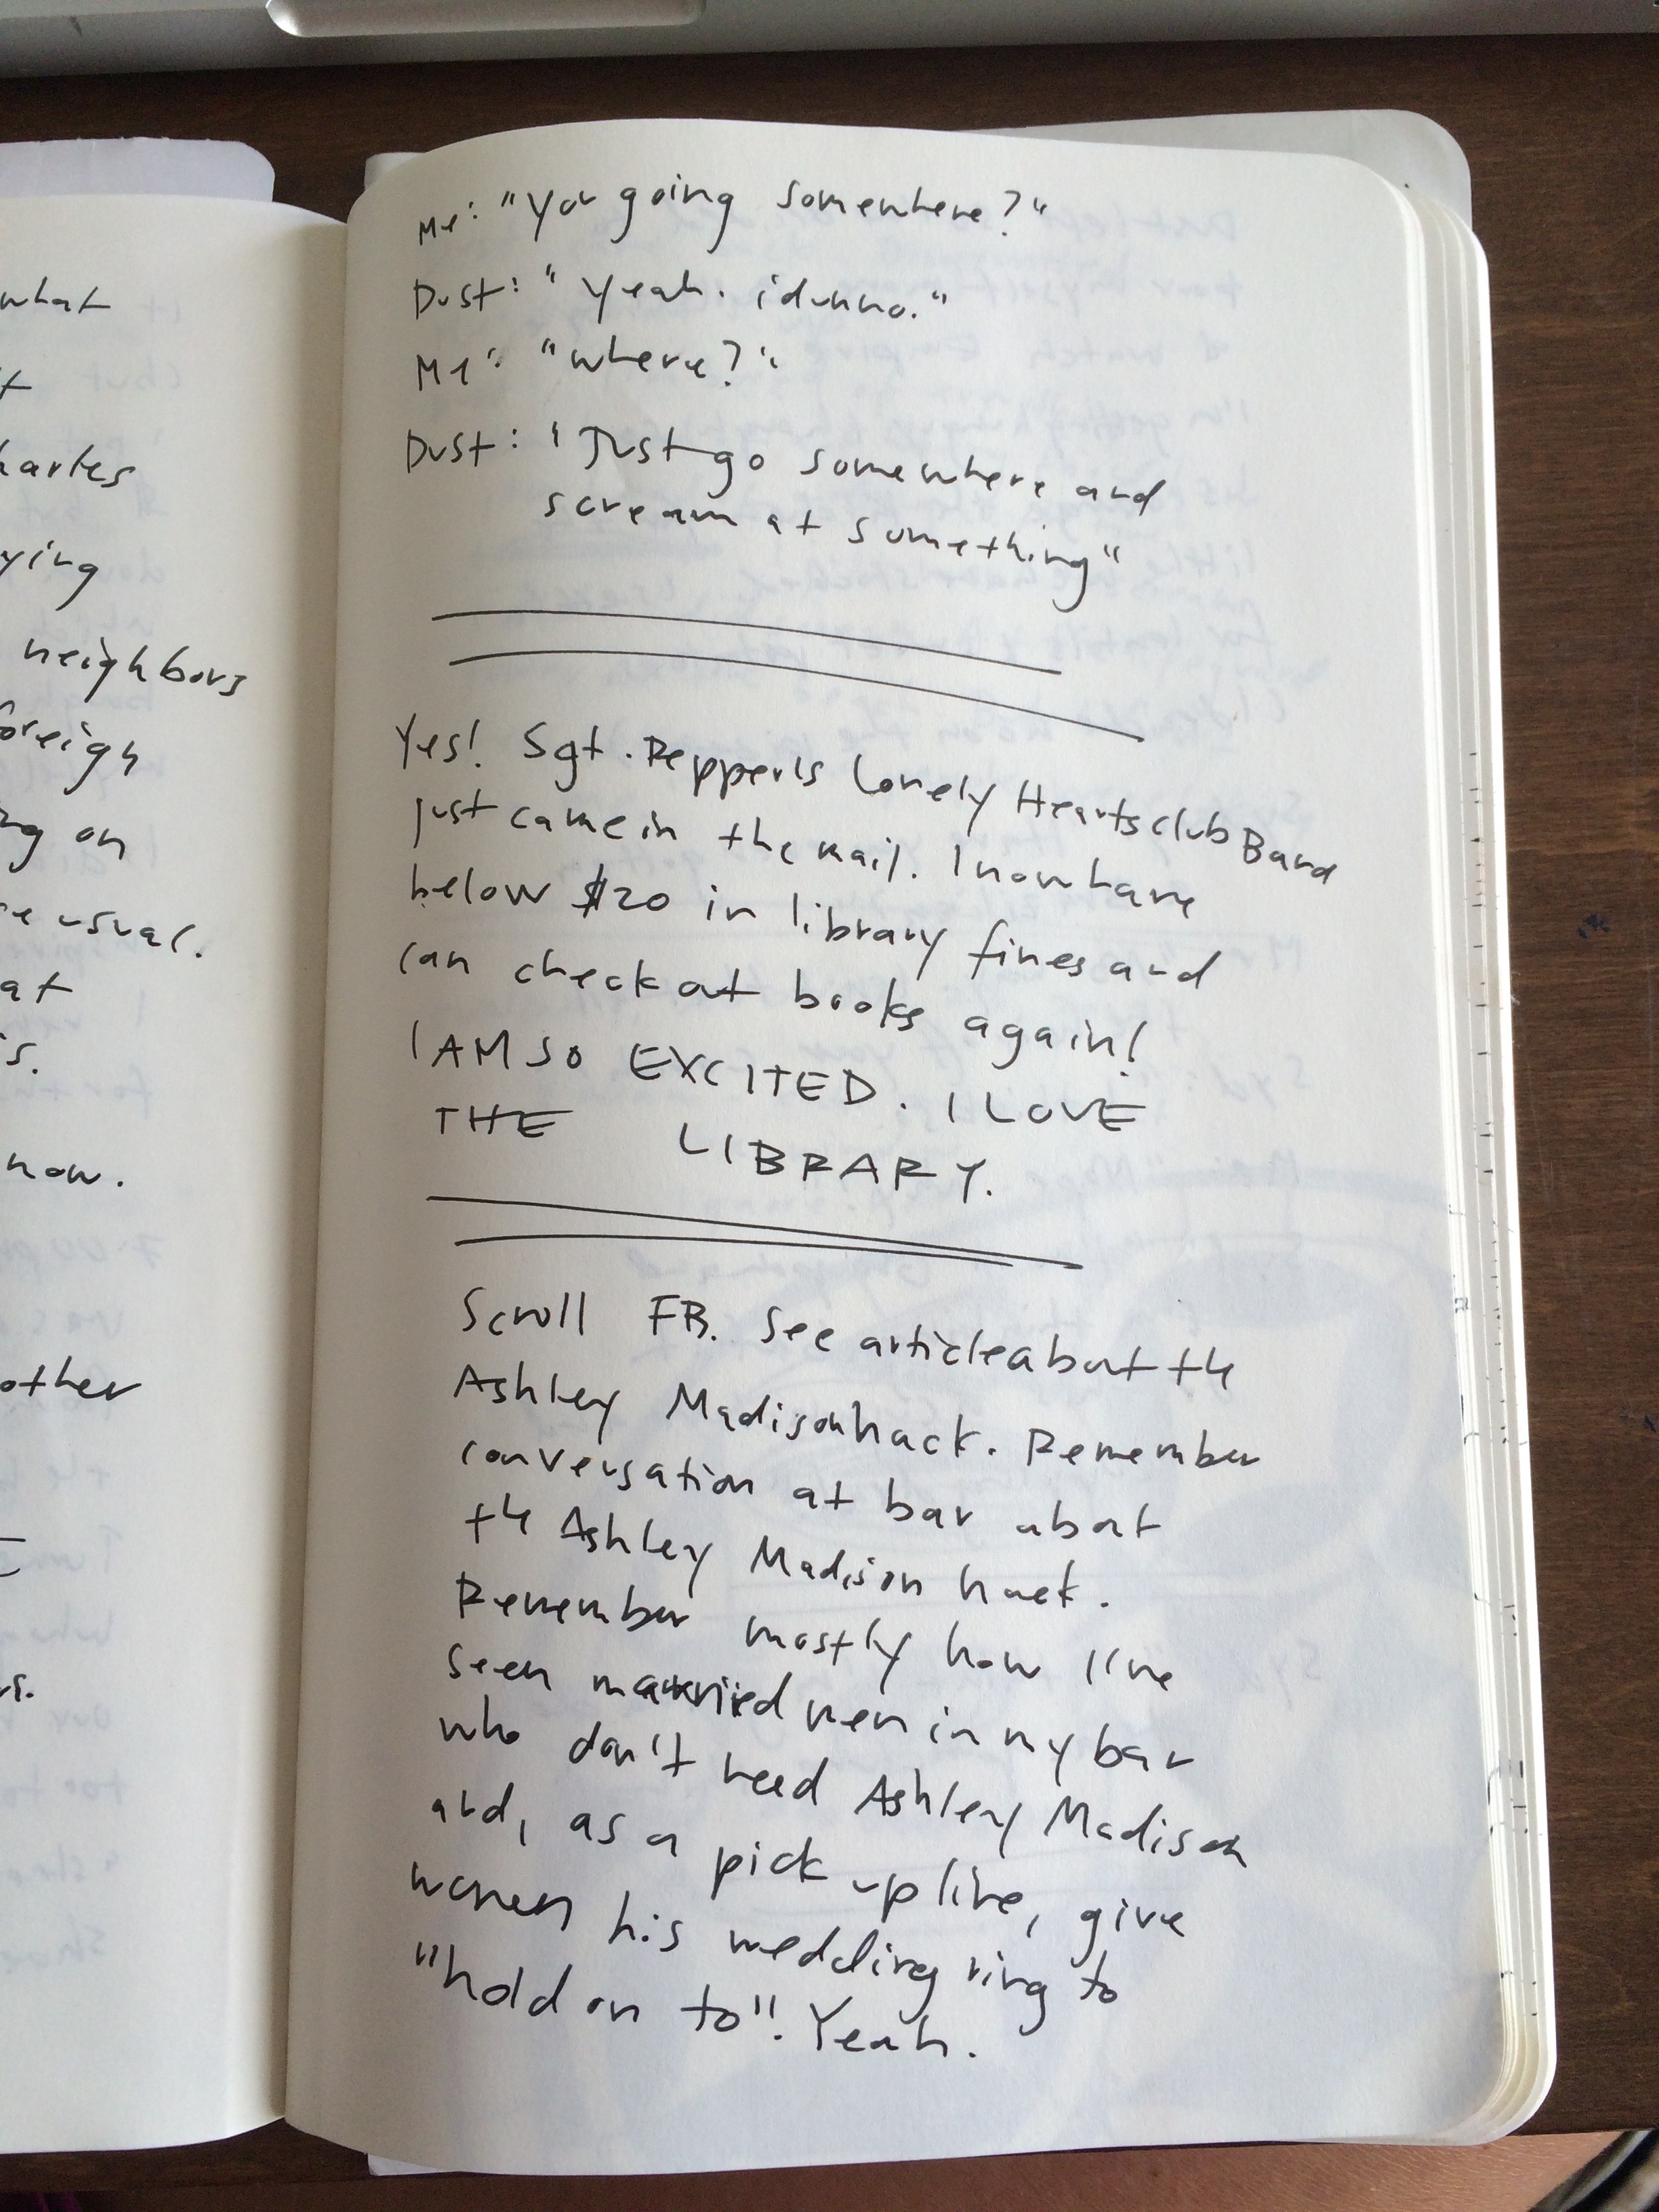 what
t
hartes
ying
neighbors
foreign
ng on
re usual.
at
s.
now.
other
rs.
Me: "You going somewhere?"
Dust: "Yeah. idunno."
Me: "where?"
Dust: "Just go somewhere and
scream at something"
Yes! Sgt. Pepper's Lonely Hearts club Band
just came in the mail. I now have
below $20 in library fines and
can check out books again!
I AM SO EXCITED. I LOVE
THE LIBRARY.
Scroll FB. See article about the
Ashley Madison hack. Remember
conversation at bar about
the Ashley Madison hack.
Remember mostly how I've
seen married men in my bar
who don't need Ashley Madison
and, as a pick up line, give
women his wedding ring to
"hold on to". Yeah.